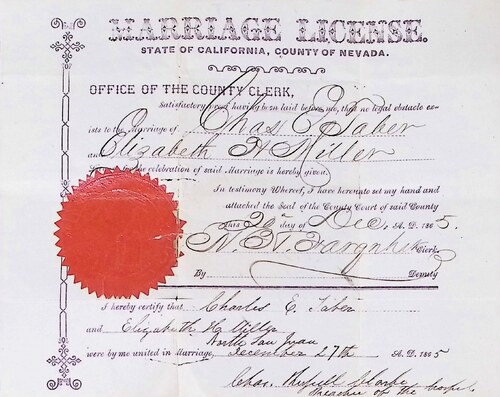 MARRIAGE LICENSE.
STATE OF CALIFORNIA, COUNTY OF NEVADA.
OFFICE OF THE COUNTY CLERK,
Satisfactory proof having been laid before me, that no legal obstacle ex-
ists to the Marriage of Chas E. Taber
and Elizabeth H Miller
for the celebration of said Marriage is hereby given.
In testimony Whereof, I have hereunto set my hand and
attached the Seal of the County Court of said County
this 20th day of Dec, A. D. 1865.
Clerk.
By Deputy
I hereby certify that Charles E. Taber
and Elizabeth H. Miller
North San Juan
were by me united in Marriage, December 27th A. D. 1865
Chas.
Preacher of the Gospel